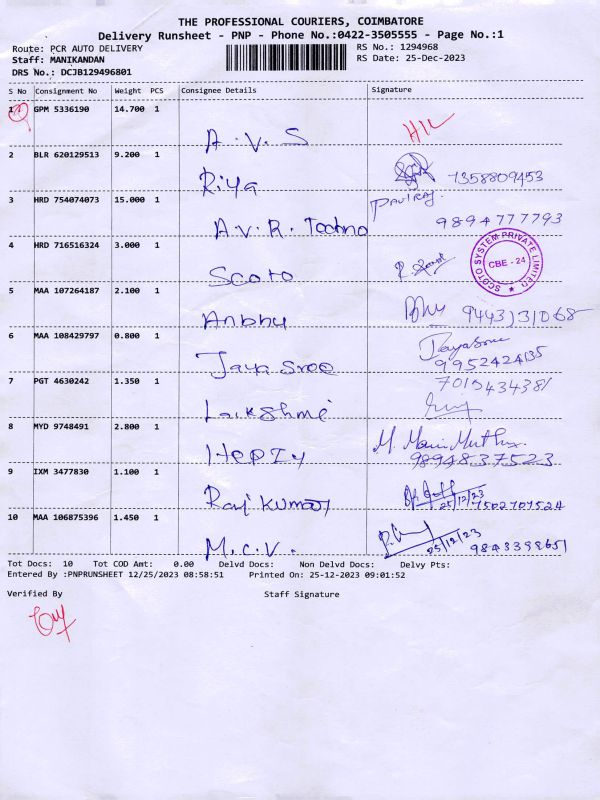 THE PROFESSIONAL COURIERS, COIMBATORE
Delivery Runsheet - PNP - Phone No.:0422-3505555 - Page No.:1
Route: PCR AUTO DELIVERY
RS No.: 1294968
Staff: MANIKANDAN
RS Date: 25-Dec-2023
DRS No.: DCJB129496801
S No Consignment No Weight PCS Consignee Details Signature
1 GPM 5336190 14.700 1
A.V.S
2 BLR 620129513 9.200 1
Riya 7358809453
3 HRD 754074073 15.000 1 PAULRAJ
A.V.R. Techno 9894777793
4 HRD 716516324 3.000 1
Scoto
SCOTO SYSTEM PRIVATE LIMITED
CBE - 24
5 MAA 107264187 2.100 1
Anbhu
6 MAA 108429797 0.800 1
Jaya Sree 9952424135
7 PGT 4630242 1.350 1
Lakshmi
8 MYD 9748491 2.800 1
9894837523
9 IXM 3477830 1.100 1
Raj Kumar 25/12/23 7502707524
10 MAA 106875396 1.450 1
M.C.V. 25/12/23
Tot Docs: 10 Tot COD Amt: 0.00 Delvd Docs: Non Delvd Docs: Delvy Pts:
Entered By :PNPRUNSHEET 12/25/2023 08:58:51 Printed On: 25-12-2023 09:01:52
Verified By Staff Signature